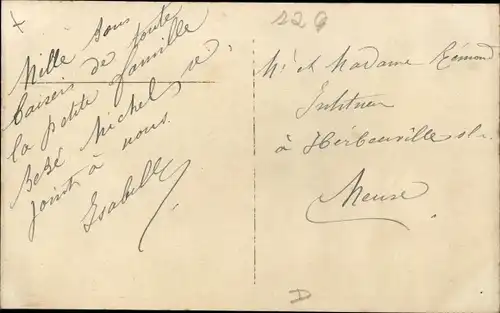 Mille bons
baisers de toute
la petite famille
Bébé Michel se
joint à nous.
Isabelle
229
Mr et Madame Rémond
à Herbeuville
Meuse
D